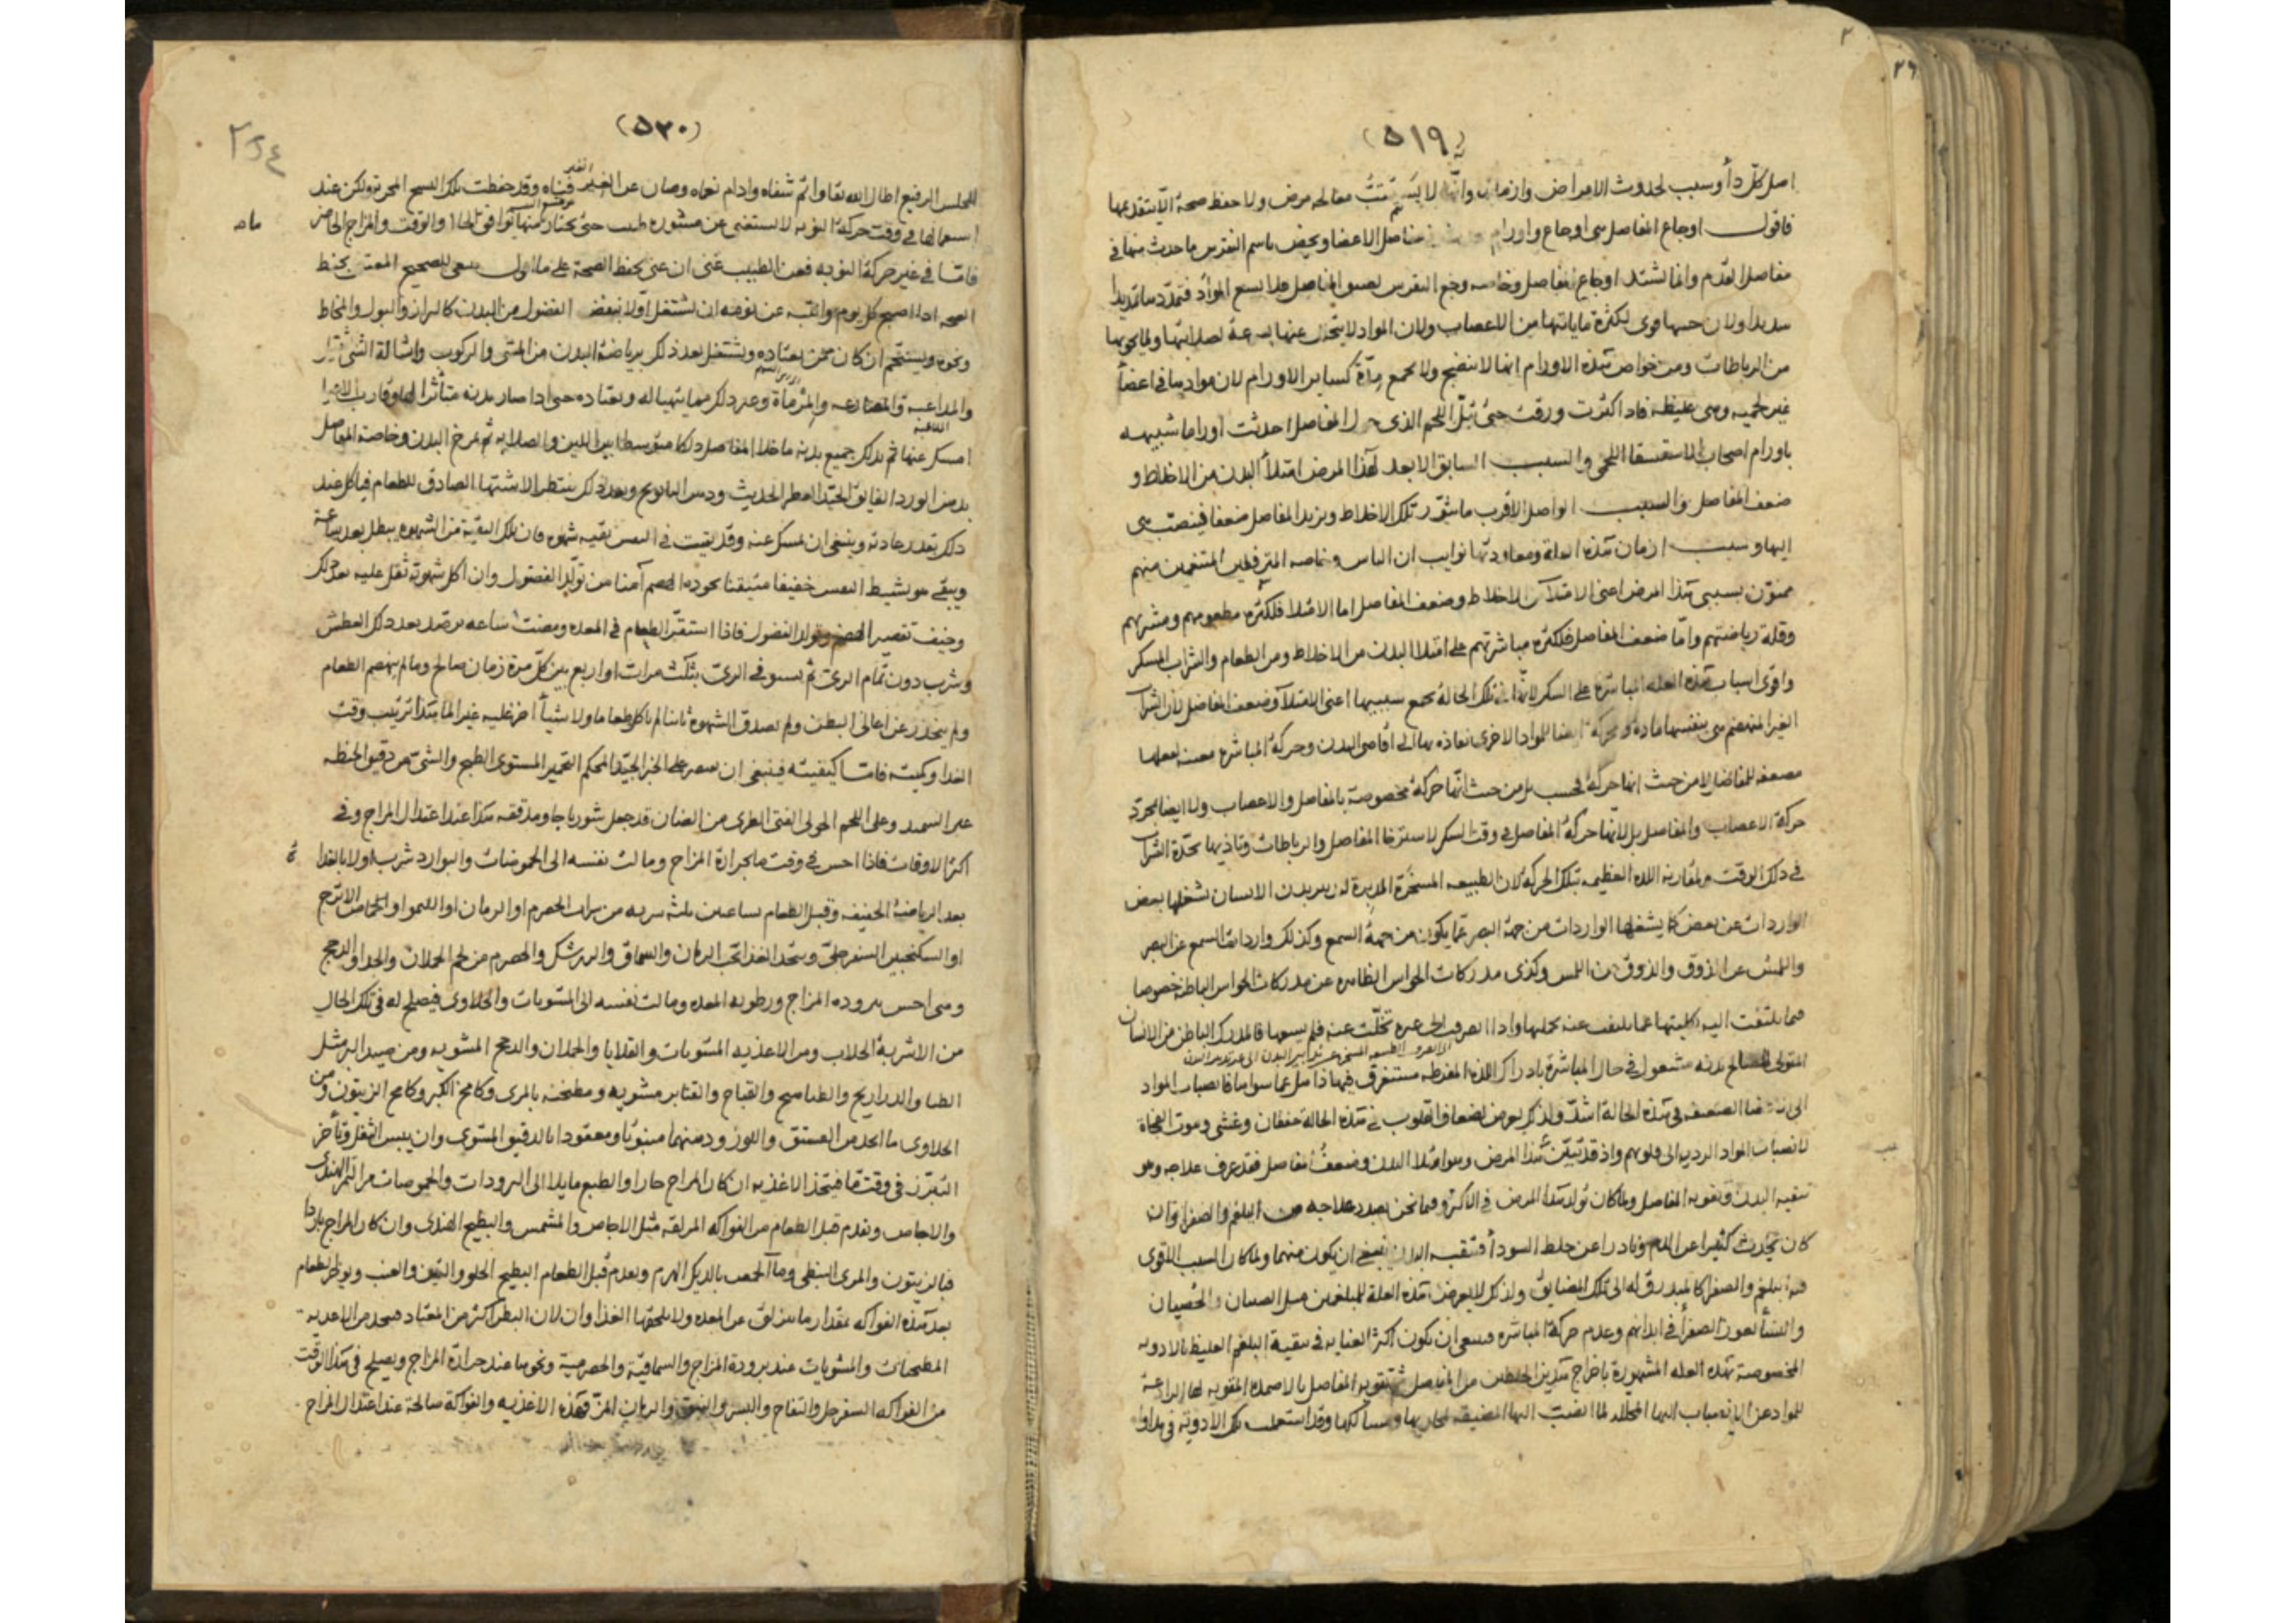 (٥١٩)
اصل كل دأ وسبب لحدوث الامراض وازمانها وانه لا يستتب معالجه مرض ولا حفظ صحة الا بتقدمها
فاقول اوجاع المفاصل هى اوجاع واورام تحدث في مفاصل الاعضا ويخص باسم النقرس ما حدث منها في
مفاصل القدم وانما يشتد اوجاع المفاصل وخاصه وجع النقرس لضيق المفاصل فلا يسع المواد فتمدد ها تمديدا
شديدا ولان حسها قوى لكثرة ما ياتيها من الاعصاب ولان المواد لا يتحلل عنها بسرعة لصلابتها ولما يحويها
من الرباطات ومن خواص هذه الاورام انها لا ينضج ولا يجمع مدّة كساير الاورام لان موادها في اعضأ
غير لحميه وهى غليظه فاذا كثرت ورقت حتى تبلّ اللحم الذى حول المفاصل احدثت اوراما شبيهه
باورام اصحاب الاستسقا اللحمى والسبب السابق الابعد لهذا المرض امتلأ البدن من الاخلاط و
ضعف المفاصل والسبب الواصل الاقرب ما يثور تلك الاخلاط ويزيد المفاصل ضعفا فينصب هى
اليها وسبب ازمان هذه العلة ومعاودتها نوايب ان الناس وخاصه المترفهين المتنعمين منهم
ممنوّن بسببى هذا المرض اعنى الامتلآ من الاخلاط وضعف المفاصل اما الامتلا فلكثرة مطعومهم ومشربهم
وقلة رياضتهم وامّا ضعف المفاصل فلكثرة مباشرتهم على امتلا البدن من الاخلاط ومن الطعام والشراب المسكر
واقوى اسباب هذه العله المباشرة على السكر لانها في تلك الحالة يجمع سببيها اعنى الامتلآ وضعف المفاصل لان الشراب
الغير المنهضم هى بنفسها مادة ومحركة ايضا للمواد الاخرى نفاذه بها الى اقاصى البدن وحركة المباشرة
مضعفه للمفاصل لا من حيث انها حركة فحسب بل من حيث انها حركة مخصوصة بالمفاصل والاعصاب ولا ايضا بمجرد
حركة الاعصاب والمفاصل بل لانها حركة المفاصل في وقت السكر لاسترخا المفاصل والرباطات وتاذيها بحدّة الشراب
في ذلك الوقت ولمقارنه اللذه العظيمه تلك الحركة لان الطبيعه المسخّرة المدبرة لبدن الانسان يشغلها بعض
الواردات عن بعض كما يشغلها الواردات من جهة البصر عما يكون من جهة السمع وكذلك واردات السمع عن البصر
واللمس عن الذوق والذوق عن اللمس وكذى مدركات الحواس الظاهره عن مدركات الحواس الباطنه خصوصا
فيما يلتفت اليه بكليتها عما يلتفت عنه بكليتها واذا انصرفت الى غيره تخلّت عنه فلم يسعها فالمدرك الباطن من الانسان
المتولى لمصالح بدنه مشغول في حال المباشرة بادراك اللذه المفرطه مستغرق فيها ذاهل عما سواها فانصباب المواد
الى الاعضا الضعيفه في هذه الحالة اشدّ ولذلك يعرض لضعاف القلوب في هذه الحالة خفقان وغشى وموت الفجاة
لانصباب المواد الرديه الى قلوبهم واذ قد تبيّن سبب هذا المرض وهو امتلا البدن وضعف المفاصل فقد عرف علاجه وهو
تنقيه البدن وتقويه المفاصل ولما كان تولد هذا المرض في الاكثر وفيما نحن بصدد علاجه من البلغم والصفرا وان
كان يحدث كثيرا عن الدم ونادرا عن خلط السودأ فتنقيه البدن ينبغى ان يكون منهما ولما كان السبب الاقوى
فيه البلغم والصفرا كالمبدرق له الى تلك المضايق ولذلك لا يعرض هذه العلة للمبلغمين مثل الصبيان والخصيان
والنسأ لعوز الصفرأ في ابدانهم وعدم حركة المباشره فينبغى ان يكون اكثر العنايه في تنقية البلغم الغليظ بالادويه
المخصوصة بهذه العله المشهورة باخراج هذين الخلطين من المفاصل ثم تقويه المفاصل بالاضمدة المقويه لها الرادعة
للمواد عن الانصباب اليها المحللة لما انصبّ اليها المضيقه لمجاريها ومسالكها وقد استعملت تلك الادوية في مداواة
(٥٢٠)
للمجلس الرفيع اطال الله بقاه واتمّ شفاه وادام نعماه وصان عن الغير فناه وقد حفظت تلك النسخ المجربة ولكن عند
استعمالها في وقت حركة النوبه لا يستغنى عن مشورة طبيب حتى يختار منها ما يوافق الحال والوقت والمزاج الحاضر
فامّا في غير حركة النوبه فعن الطبيب غنى ان عنى بحفظ الصحة على ما اقول ينبغى للصحيح المعتنى بحفظ
الصحه اذا اصبح كل يوم وانتبه عن نومه ان يشتغل اوّلا بنفض الفضول من البدن كالبراز والبول والمخاط
ونحوه ويستحمّ ان كان ممن يعتاده ويشتغل بعد ذلك برياضة البدن من المشى والركوب واشالة الشئ
والمداعبه والمصارعه والمرماة وغير ذلك مما يتهيا له ويعتاده حتى اذا صار بدنه متأثرا لها وقارب الاعيا
امسك عنها ثم يدلك جميع بدنه ما خلا المفاصل دلكا متوسطا بين اللين والصلابه ثم يمرخ البدن وخاصة المفاصل
بدهن الورد الفايق الجيّد العطر الحديث ودهن البابونج وبعد ذلك ينتظر الاشتها الصادق للطعام فياكل عند
ذلك بقدر عادته وينبغى ان يمسك عنه وقد بقيت في النفس بقيه شهوه فان تلك البقية من الشهوه يبطل بعد ساعة
ويبقى هو نشيط النفس خفيفا متيقنا بجوده الهضم آمنا من تولّد الفضول وان اكل شهوته ثقل عليه بعد ذلك
وخيف تقصير الهضم وتولد الفضول فاذا استقر الطعام في المعده ومضت ساعه يرصد بعد ذلك العطش
وشرب دون تمام الرىّ ثم يستوفى الرىّ بثلث مرات او اربع بين كلّ مرة زمان صالح وما لم ينهضم الطعام
ولم ينحدر عن اعالى البطن ولم يصدق الشهوة ثانيا لم ياكل طعاما ولا شيأ اخر غليه غير الما
الغذا وكميته فامّا كيفيته فينبغى ان يقتصر على الخبز الجيّد المحكم التخمير المستوى الطبخ والشىّ من دقيق الحنطه
غير السميد وعلى اللحم الحولى الفتى الطرى من الضان قد جعل شورباجا ومدققه هكذا عند اعتدال المزاج وفى
اكثر الاوقات فاذا احس في وقت ما بحرارة المزاج ومالت نفسه الى الحموضات والبوارد شرب اولا بالغدا
بعد الرياضة الخفيفه وقبل الطعام بساعتين ثلثه شربه من شراب الحصرم او الرمان او الليمو او الحماض الاترج
او السكنجبين السفرجلى ويتخذ الغذا بحب الرمان والسماق والزرشك والحصرم من لحم الحملان والجدا والدجج
ومتى احس ببروده المزاج ورطوبه المعده ومالت نفسه الى المشويات والحلاوى فيصلح له في تلك الحال
من الاشربة الجلاب ومن الاغذيه المشويات والقلايا والحملان والدجج المشويه ومن صيد البر مثل
الظبا والدراريج والطياهيج والقباج والقنابر مشويه ومطجنه بالمرى وكامخ الكبر وكامخ الزيتون ومن
الحلاوى ما اتخذ من الفستق واللوز ودهنهما مبثوثا ومعقودا بالدقيق المشوى وان يبس الثفل وتأخر
التبرّز في وقت ما فيتخذ الاغذيه ان كان المزاج حارا والطبع مايلا الى البرودات والحموضات من التمر الهندى
والاجاص ويقدم قبل الطعام من الفواكه المزلقه مثل الاجاص والمشمش والبطيخ الهندى وان كان المزاج باردا
فبالزيتون والمرى النبطى وماآ الحمص بالديك الهرم ويقدم قبل الطعام البطيخ الحلو والتين والعنب ويوخر الطعام
بعد هذه الفواكه بمقدار ما ينزلق عن المعده ولا يلحقها الغذا وان لان البطن اكثر من المعتاد فيتخذ من الاغذيه
المطجنات والمشويات عند برودة المزاج والسماقية والحصرمية ونحوها عند حرارة المزاج ويصلح في هذا الوقت
من الفواكه السفرجل والتفاح والبسر والنبق والرمان المزّ فهذه الاغذيه والفواكه صالحة عند اعتدال المزاج